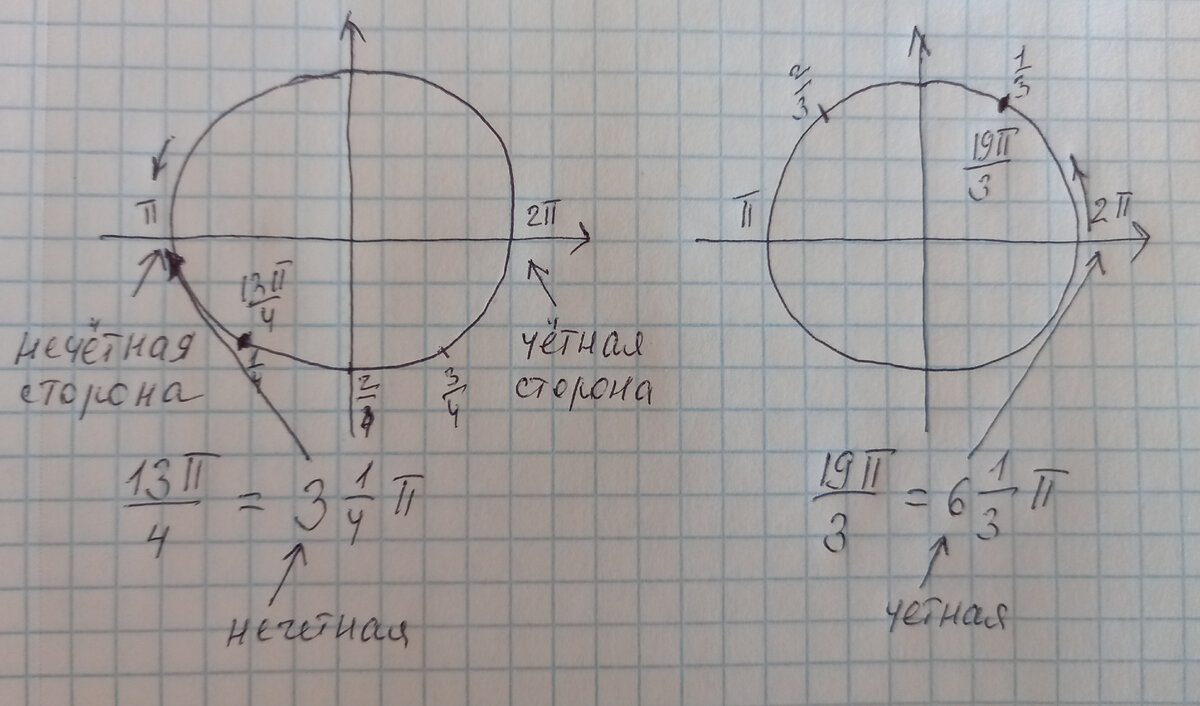 π
2π
13π/4
1/4
2/4
3/4
нечётная
сторона
чётная
сторона
13π/4 = 3 1/4 π
нечетная
2/3
1/3
19π/3
π
2π
19π/3 = 6 1/3 π
четная